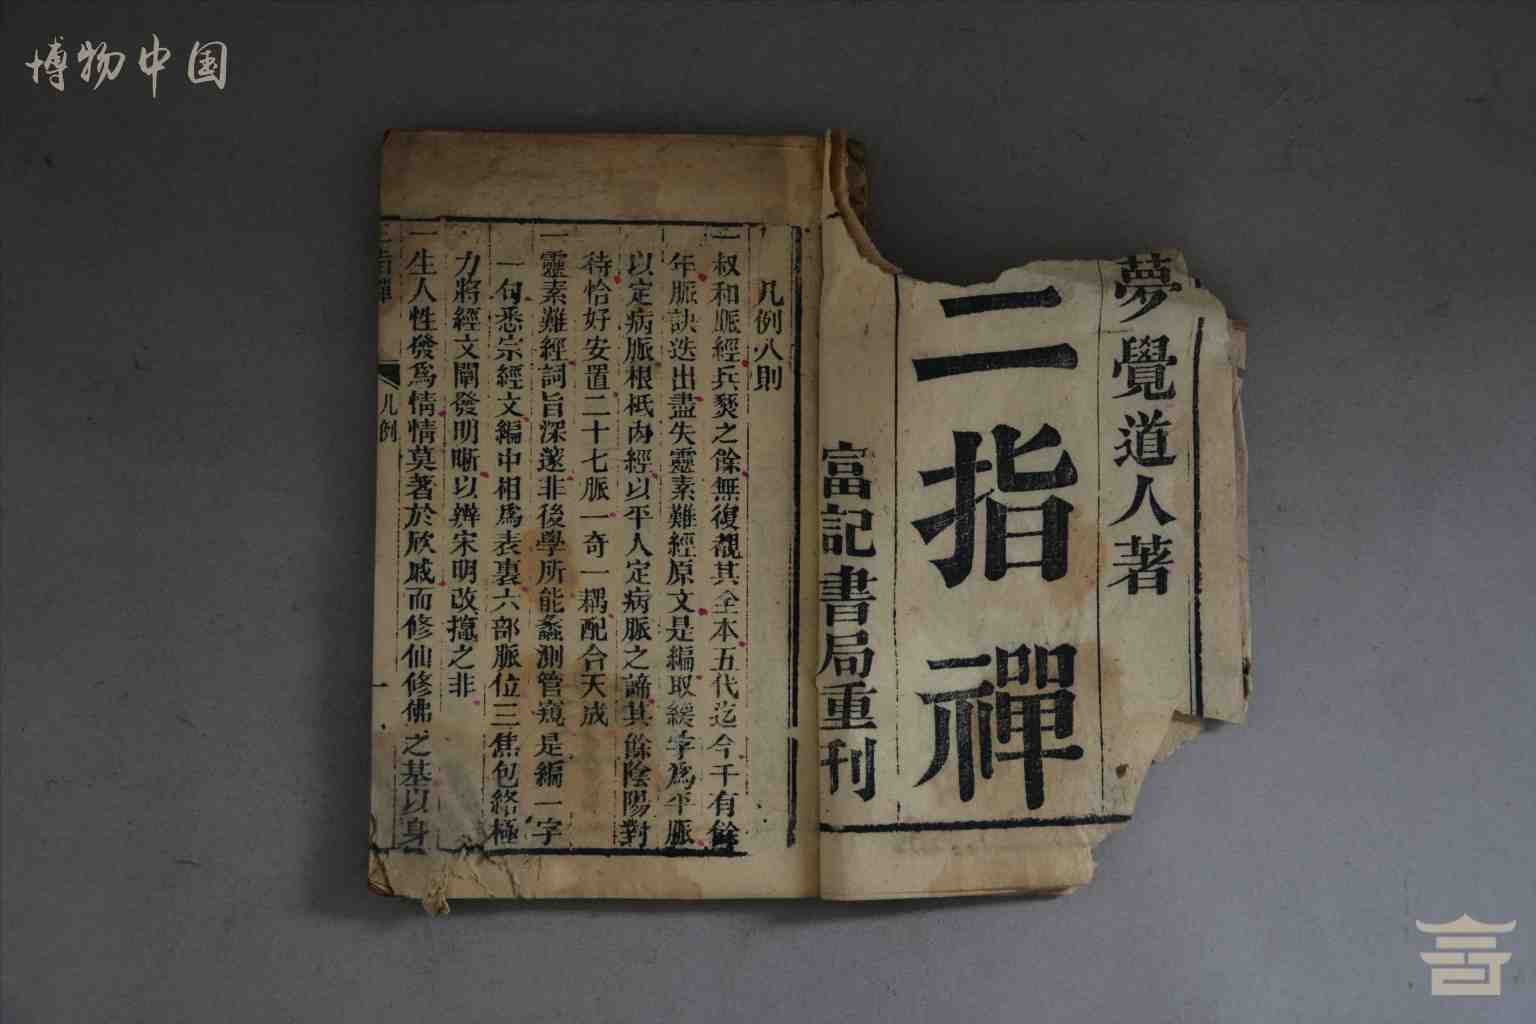 博物中国
夢覺道人著
二指禪
富記書局重刊
凡例八則
一叔和脈經兵燹之餘無復覩其全本五代迄今千有餘
年脈訣迭出盡失靈素難經原文是編取緩字爲平脈
以定病脈根柢內經以平人定病脈之諦其餘陰陽對
待恰好安置二十七脈一奇一耦配合天成
一靈素難經詞旨深邃非後學所能蠡測管窺是編一字
一句悉宗經文編中相爲表裏六部脈位三焦包絡極
力將經文闡發明晰以辨宋明改攛之非
一生人性發爲情情莫著於欣戚而修仙修佛之基以身
二指禪
凡例
一